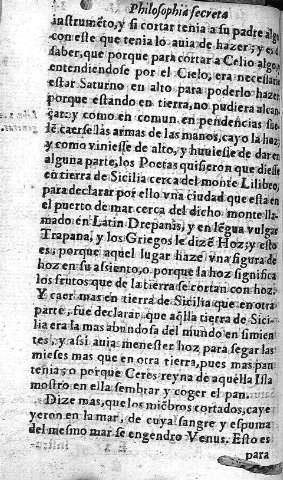 Philosophia secreta
instrumẽto, y si cortar tenia a su padre algo
con este que tenia lo auia de hazer; y es de
saber, que porque para cortar a Celio algo,
entendiendose por el Cielo, era necessario
estar Saturno en alto para poderlo hazer
porque estando en tierra, no pudiera alcan
çar: y como en comun en pendencias sue
lẽ caerse las armas de las manos, cayo la hoz,
y como viniesse de alto, y huuiesse de dar en
alguna parte, los Poetas quisieron que diesse
en tierra de Sicilia cerca del monte Lilibeo,
para declarar por ello vna ciudad que esta en
el puerto de mar cerca del dicho monte lla-
mado en Latin Drepanis, y en lẽgua vulgar
Trapana, y los Griegos le dizẽ Hoz; y esto
es, porque aquel lugar haze vna figura de
hoz en su assiento, o porque la hoz significa
los frutos que de la tierra se cortan con hoz.
Y caer mas en tierra de Sicilia que en otra
parte, fue declarar, que aq̃lla tierra de Sici-
lia era la mas abundosa del mundo en simien
tes, y assi auia menester hoz para segar las
mieses mas que en otra tierra, pues mas pan
tenia; o porque Ceres reyna de aquella Isla
mostro en ella sembrar y coger el pan.
Dize mas, que los miẽbros cortados, caye
yeron en la mar, de cuya sangre y espuma
del mesmo mar se engendro Venus. Esto es
para